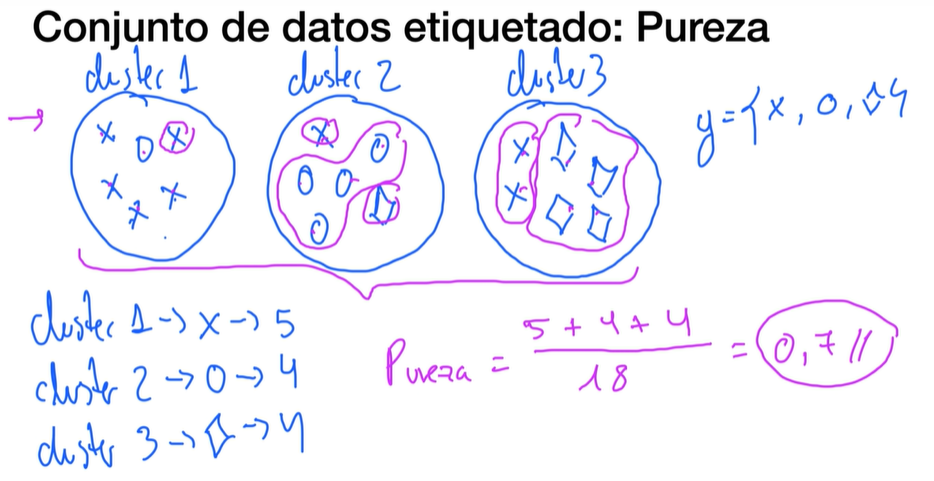 Conjunto de datos etiquetado: Pureza
cluster 1 cluster 2 cluster 3
y = {x, o, ◊}
cluster 1 → x → 5
cluster 2 → o → 4
cluster 3 → ◊ → 4
Pureza = (5 + 4 + 4) / 18 = 0,7 //